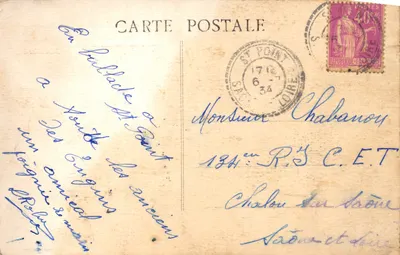 CARTE POSTALE
En ballade à
St Point.
a toutte les anciens
des Engins
un amical
poignée de main
ST POINT
17 15
6
34
SAÔNE ET LOIRE
Monsieur Chabanon
134e R I C.E.T
Chalon sur Saône
Saône et Loire